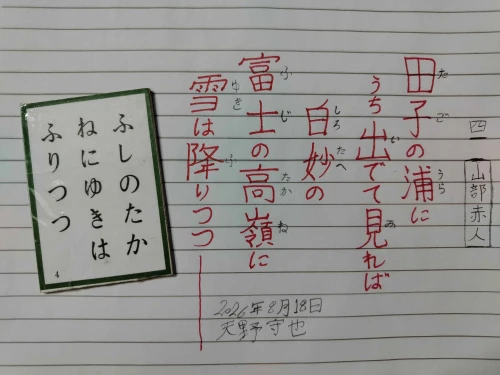 四 山部赤人
田子の浦に
うち出でて見れば
白妙の
富士の高嶺に
雪は降りつつ
たごうら
いみ
しろたへ
ふじたかね
ゆきふ
2026年8月18日
天野守也
ふしのたか
ねにゆきは
ふりつつ
4